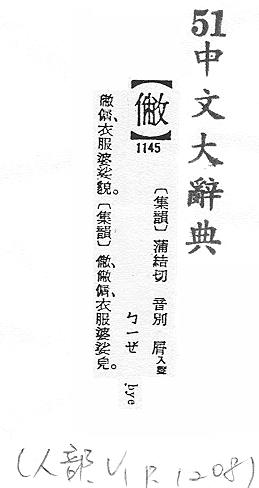 51中文大辭典
【⿰亻敝】
1145
〔集韻〕蒲結切 音別 屑入聲
ㄅㄧㄝˊ bye
⿰亻敝僁、衣服婆娑貌。〔集韻〕⿰亻敝、⿰亻敝僁、衣服婆娑皃。
(人部, V1 P. 1208)